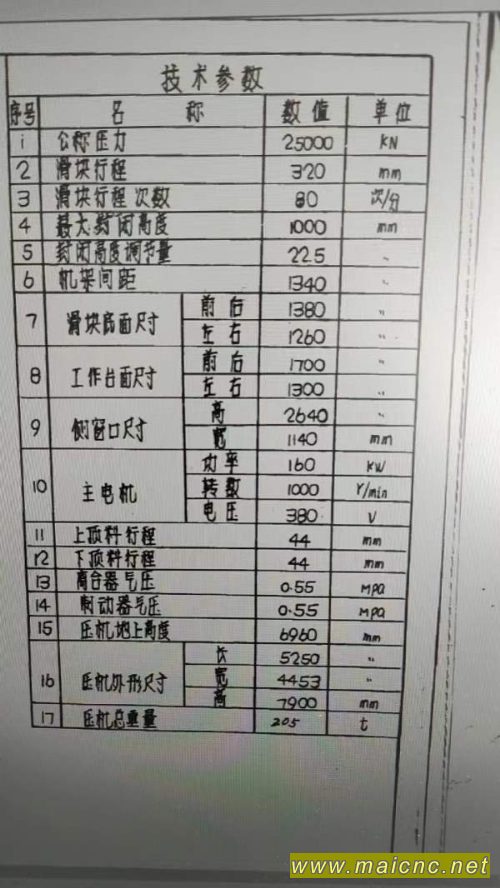 技术参数
序号 名称 数值 单位
1 公称压力 25000 KN
2 滑块行程 320 mm
3 滑块行程次数 80 次/分
4 最大封闭高度 1000 mm
5 封闭高度调节量 22.5 〃
6 机架间距 1340 〃
7 滑块底面尺寸 前后 1380 〃
左右 1260 〃
8 工作台面尺寸 前后 1700 〃
左右 1300 〃
9 侧窗口尺寸 高 2640 〃
宽 1140 mm
10 主电机 功率 160 KW
转数 1000 r/min
电压 380 V
11 上顶料行程 44 mm
12 下顶料行程 44 mm
13 离合器气压 0.55 MPa
14 制动器气压 0.55 MPa
15 压机地上高度 6960 mm
16 压机外形尺寸 长 5250 〃
宽 4453 〃
高 7900 mm
17 压机总重量 205 t
www.maicnc.net